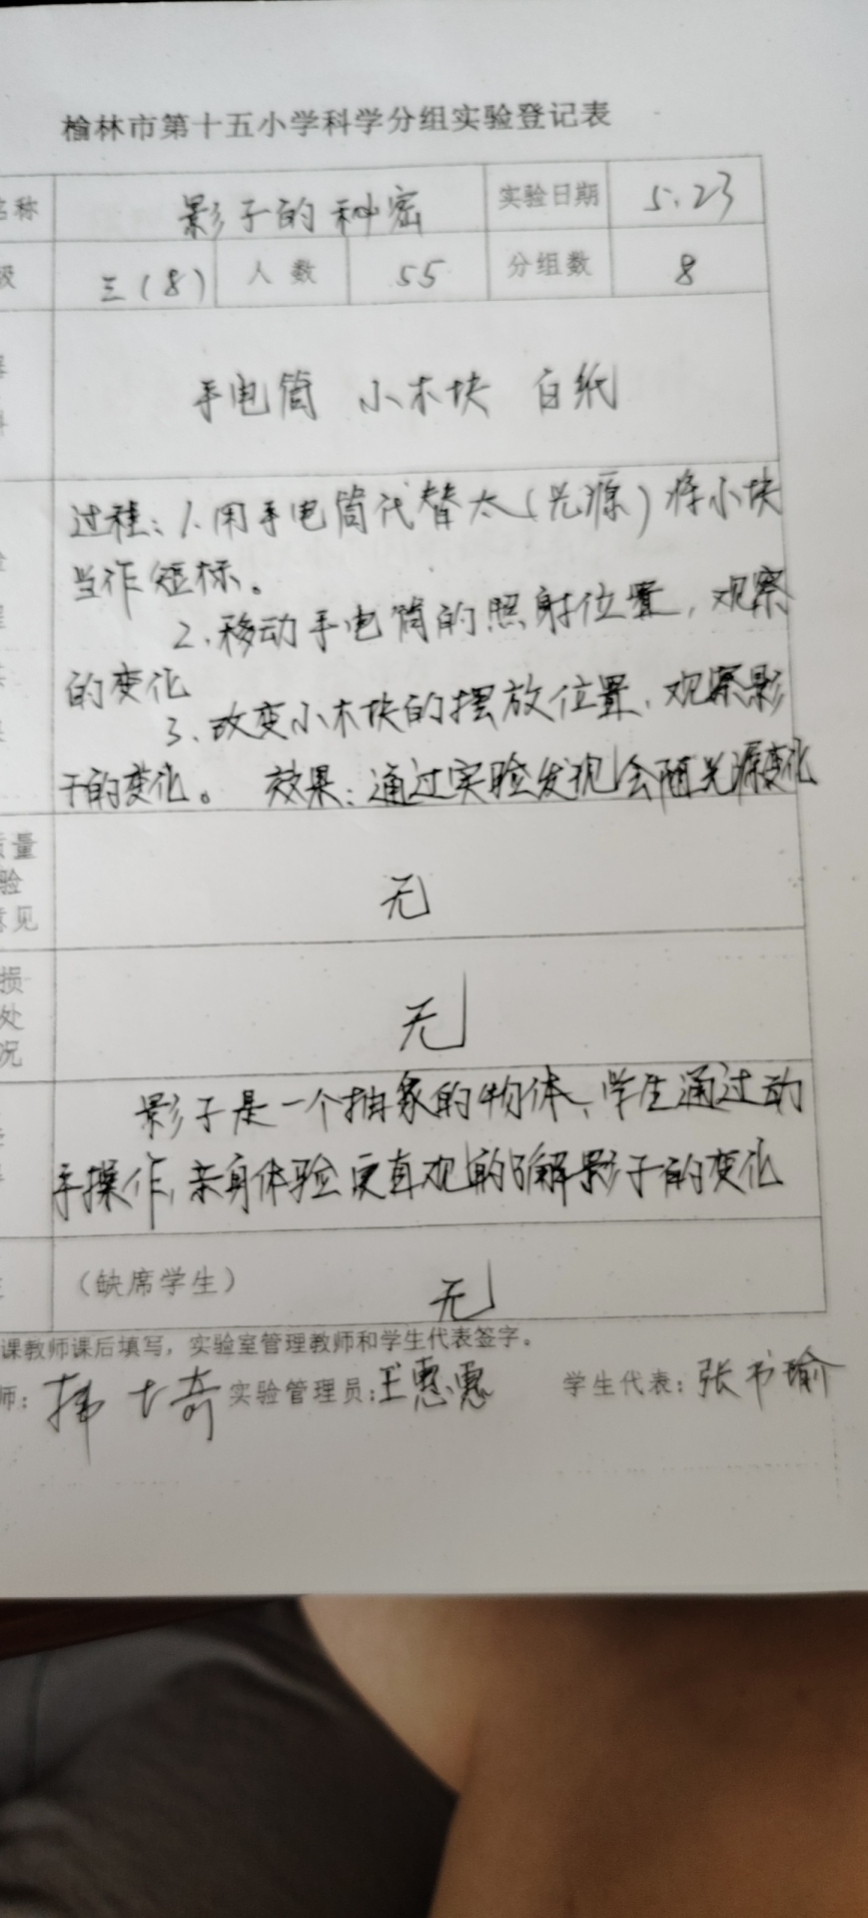 榆林市第十五小学科学分组实验登记表
名称 影子的秘密 实验日期 5.23
级 三(8) 人数 55 分组数 8
手电筒 小木块 白纸
过程:1.用手电筒代替太(光源)将小块
当作短标。
2.移动手电筒的照射位置,观察
的变化
3.改变小木块的摆放位置、观察影
子的变化。 效果:通过实验发现会随光源变化
质量
验
意见
无
损
处
况
无
影子是一个抽象的物体、学生通过动
手操作,亲身体验更直观的了解影子的变化
(缺席学生) 无
课教师课后填写,实验室管理教师和学生代表签字。
师: 实验管理员:王惠惠 学生代表:张书瑜